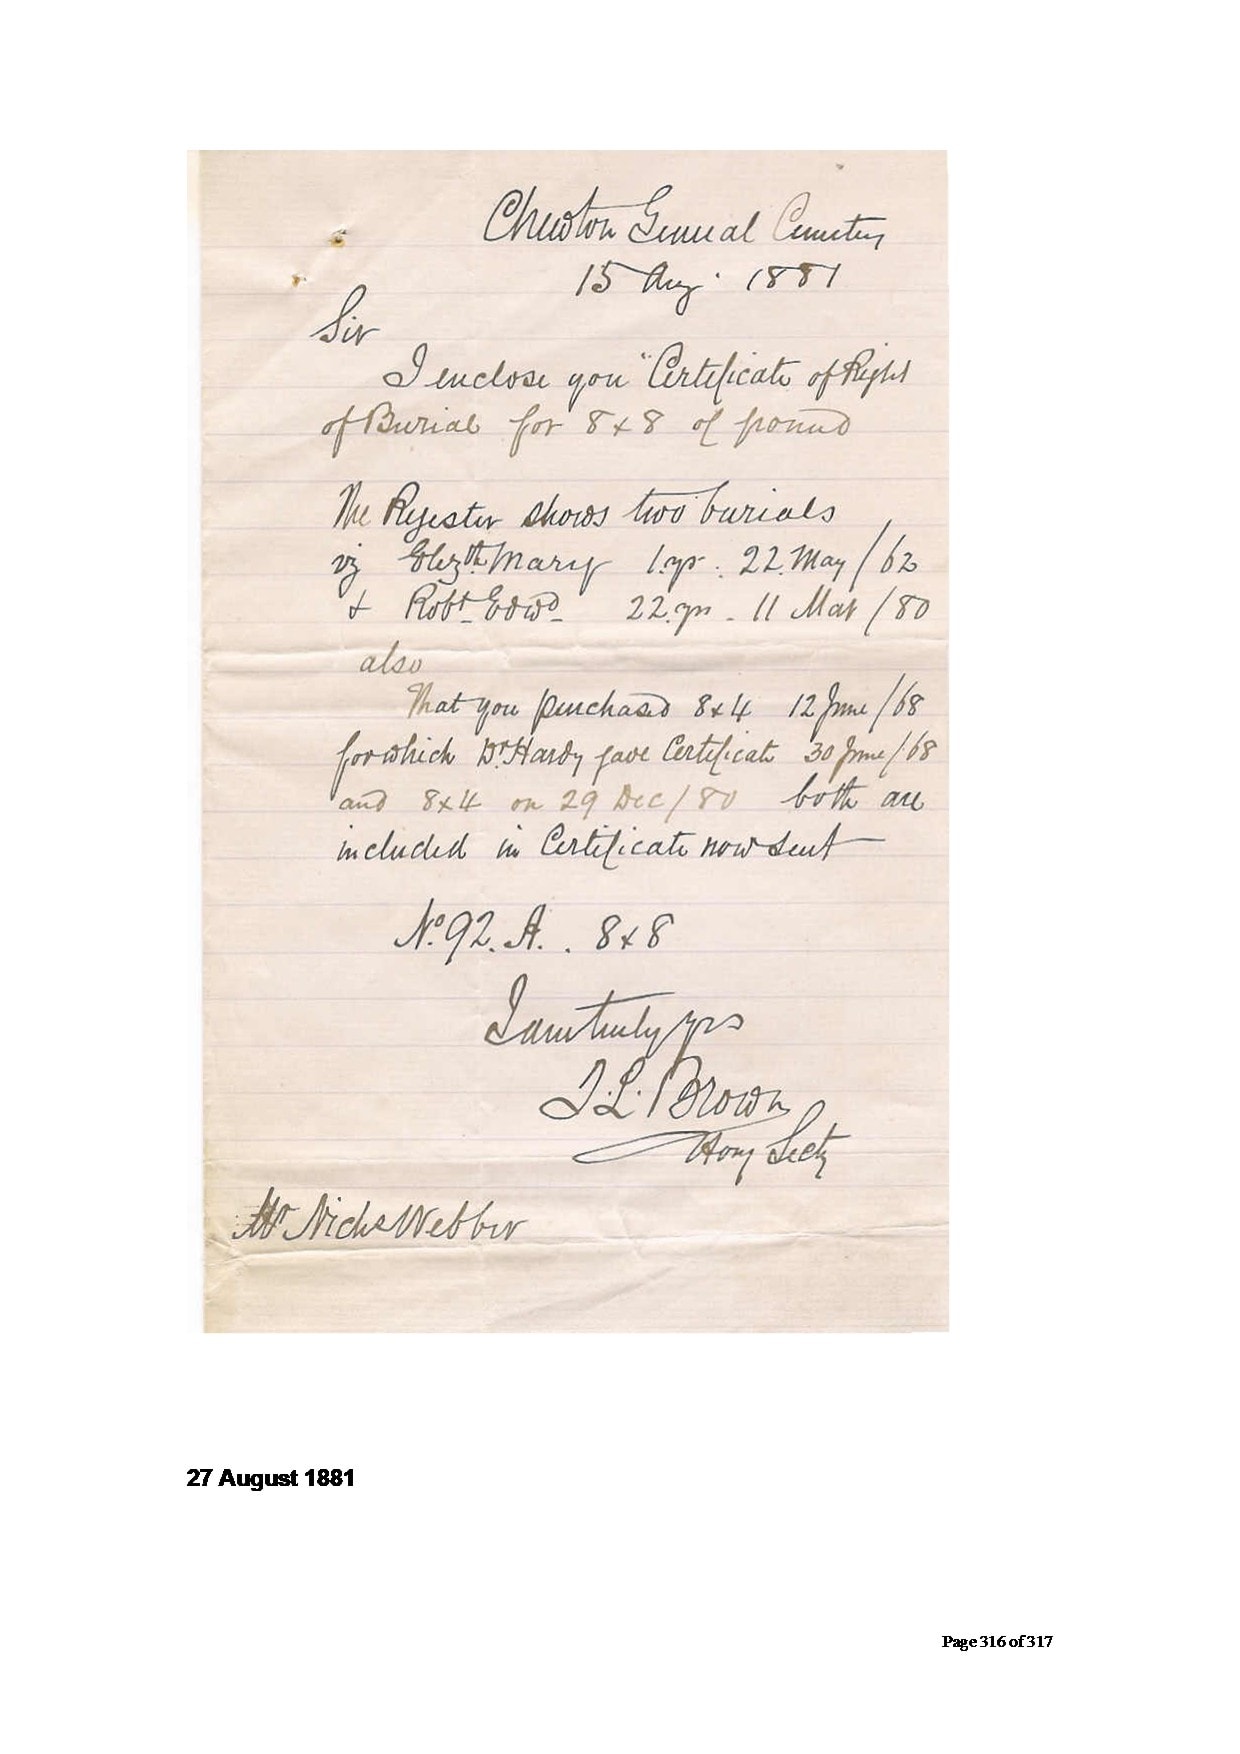 Chewton General Cemetery
15 Aug. 1881
Sir
I enclose you "Certificate of Right
of Burial for 8x8 of ground
The Register shows two burials
viz Elizth. Mary 1.yr. 22. May/62
+ Robt. Edwd. 22.yrs. 11 Mar/80
also
That you purchased 8x4 12 June/68
for which Dr. Hardy gave Certificate 30 June/68
and 8x4 on 29 Dec/80 both are
included in Certificate now sent
No. 92. A. . 8x8
I am truly yrs
J.L. Brown
Hony Secty
Mr Nichs Webber
27 August 1881
Page 316 of 317